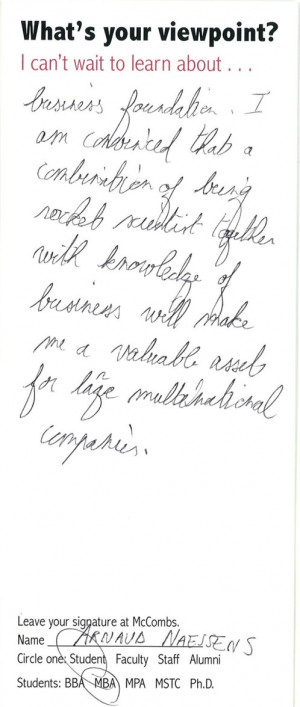 What's your viewpoint?
I can't wait to learn about . . .
business foundation. I
am convinced that a
combination of being
rocket scientist together
with knowledge of
business will make
me a valuable asset
for large multinational
companies.
Leave your signature at McCombs.
Name ARNAUD NAESSENS
Circle one: Student Faculty Staff Alumni
Students: BBA MBA MPA MSTC Ph.D.